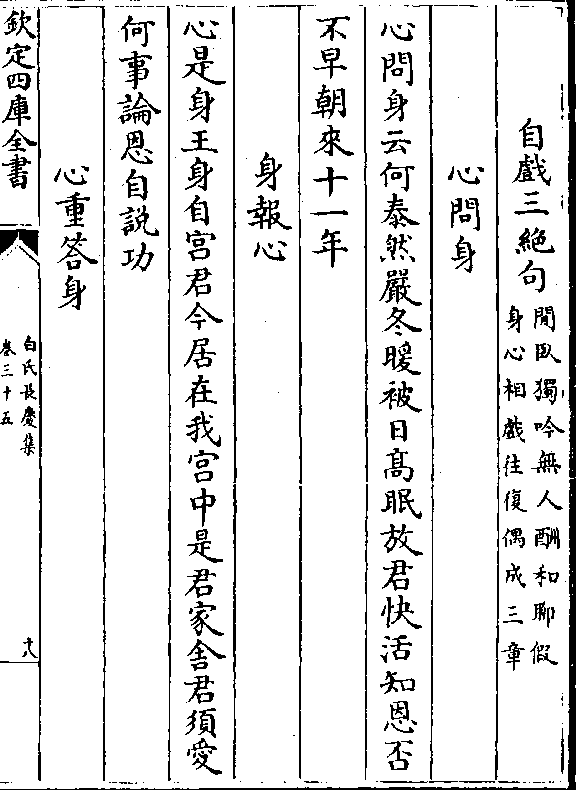 自戲三絶句 閒臥獨吟無人酬和聊假
身心相戲往復偶成三章
心問身
心問身云何泰然嚴冬暖被日髙眠放君快活知恩否
不早朝來十一年
身報心
心是身王身自宫君今居在我宫中是君家舎君須愛
何事論恩自説功
心重答身
欽定四庫全書
白氏長慶集
卷三十五
十八